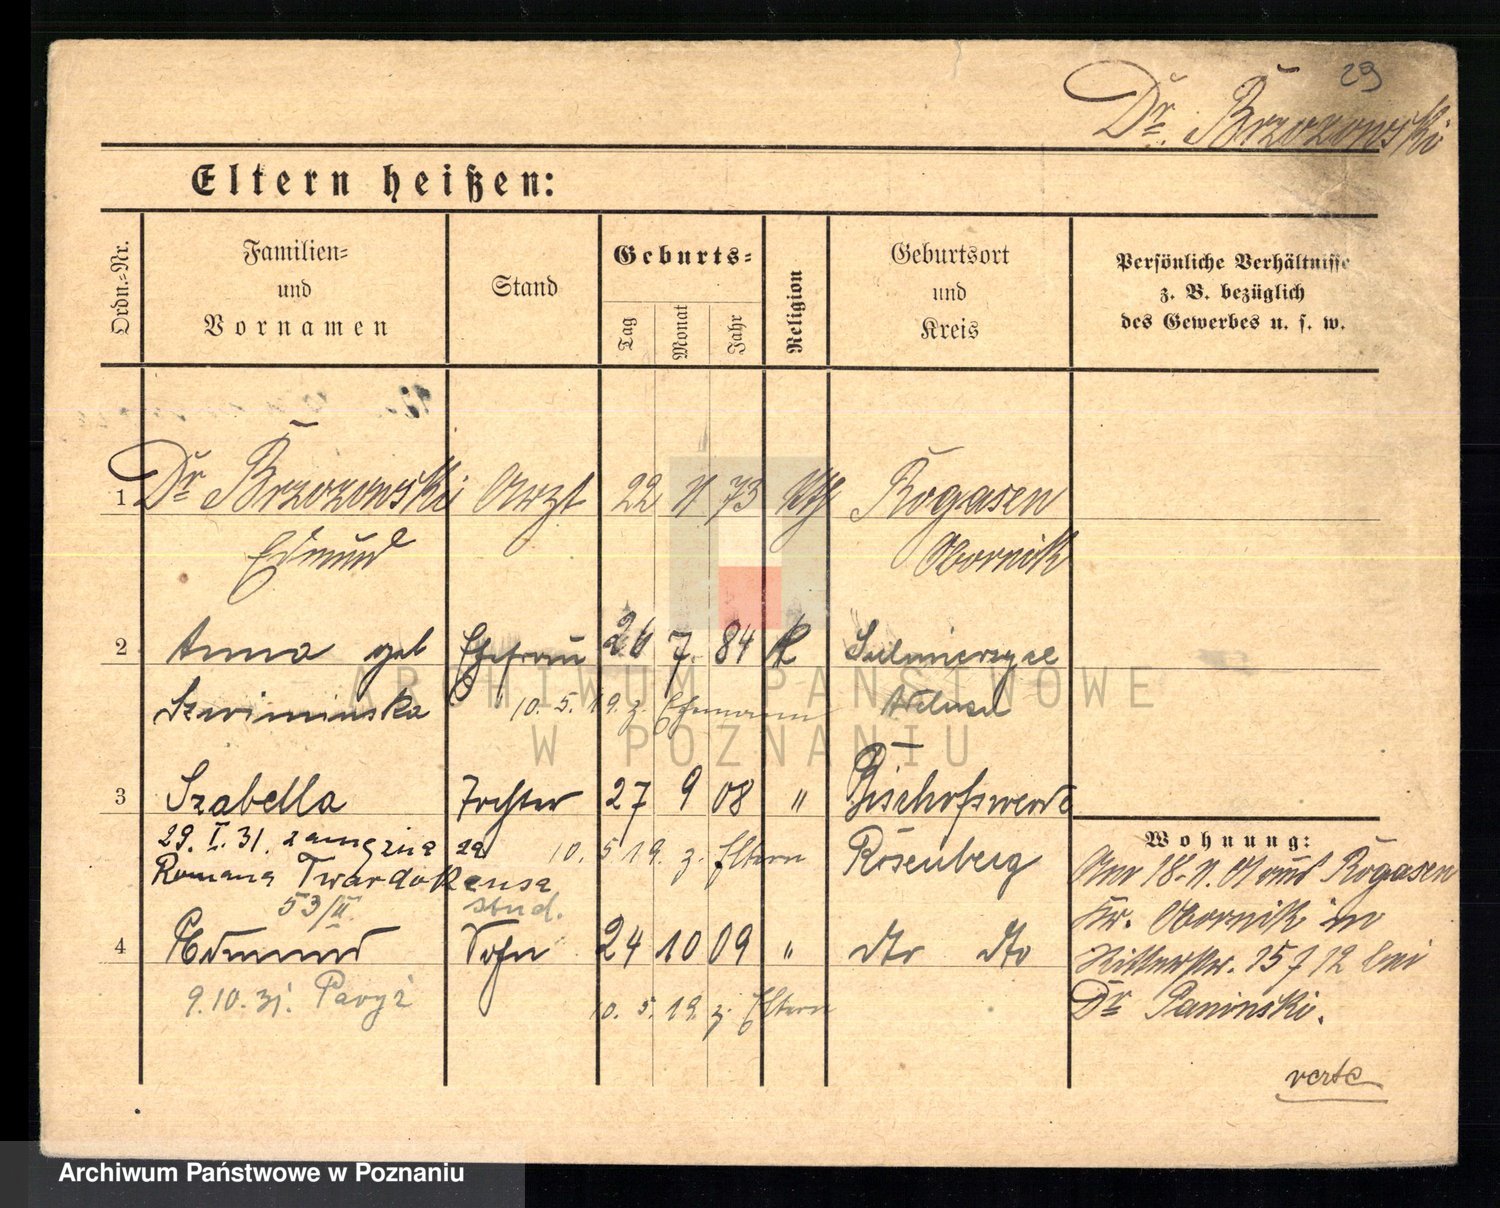 29
Dr. Brzozowski
Eltern heißen:
Ordn.=Nr.
Familien=
und
Vornamen
Stand
Geburts=
Tag
Monat
Jahr
Religion
Geburtsort
und
Kreis
Persönliche Verhältnisse
z. B. bezüglich
des Gewerbes u. s. w.
1 Dr Brzozowski Arzt 22 11 73 kth Rogasen
Edmund Obornik
2 Anna geb Ehefrau 26 7. 84 K Sulmierzyce
10. 5. 19. z. Ehemann
3 Izabella Tochter 27 9 08 " Bischofswerd
29. I. 31. zamężna za 10. 5 19. z. Eltern Rosenberg
Romana Twardo
53/II stud.
4 Edmund Sohn 24 10 09 " dto dto
9. 10. 31. Paryż 10. 5. 19. z. Eltern
Wohnung:
Am 18. 11. 01 aus Rogasen
Kr. Obornik in
Ritterstr. 15 I 12 bei
Dr Panienski.
verte
ARCHIWUM PAŃSTWOWE
W POZNANIU
Archiwum Państwowe w Poznaniu